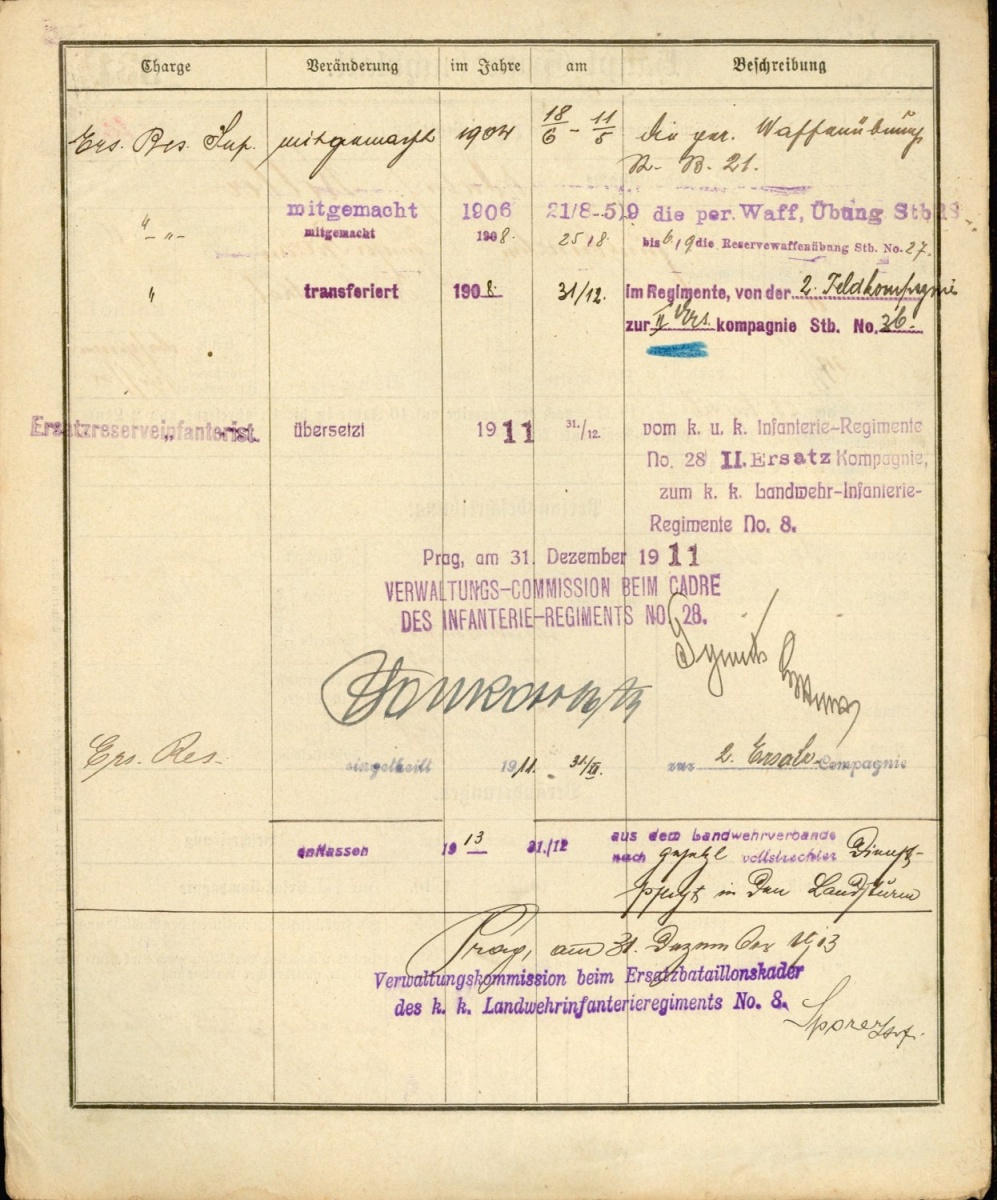 Charge Veränderung im Jahre am Beschreibung
Ers. Res. Inf. mitgemacht 1904 18/6 - 11/5 die per. Waffenübung
St. B. 21.
" - " - mitgemacht 1906 21/8-5)9 die per. Waff, Übung Stb 28
mitgemacht 1908. 25 18. bis 6/9 die Reservewaffenübung Stb. No. 27.
" transferiert 1908. 31/12. im Regimente, von der 2. Feldkompagnie
zur II Ers. kompagnie Stb. No. 36.
Ersatzreserveinfanterist. " übersetzt 1911 31./12. vom k. u. k. Infanterie-Regimente
No. 28 II. Ersatz Kompagnie,
zum k. k. Landwehr-Infanterie-
Regimente No. 8.
Prag, am 31. Dezember 1911
VERWALTUNGS-COMMISSION BEIM CADRE
DES INFANTERIE-REGIMENTS NO. 28.
Ers. Res. eingetheilt 1911. 31/XII. zur 2. Ersatz Compagnie
entlassen 1913 31./12 aus dem Landwehrverbande
nach gesetzl vollstreckter Dienst-
pflicht in den Landsturm
Prag, am 31. Dezember 1913
Verwaltungskommission beim Ersatzbataillonskader
des k. k. Landwehrinfanterieregiments No. 8.